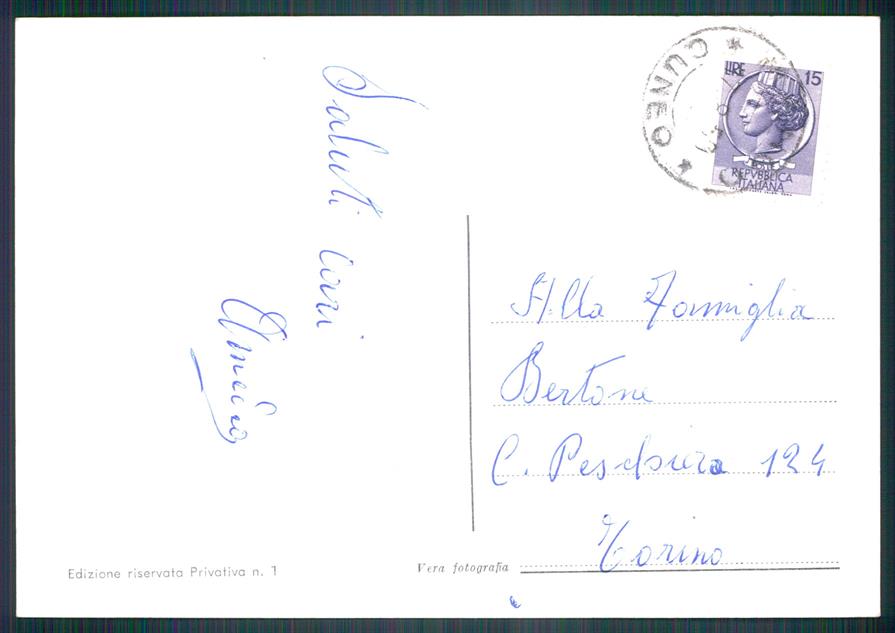 Saluti cari
CUNEO
LIRE 15
POSTE
REPVBBLICA
ITALIANA
Alla Famiglia
Bertone
C. Peschiera 124
Torino
Edizione riservata Privativa n. 1
Vera fotografia